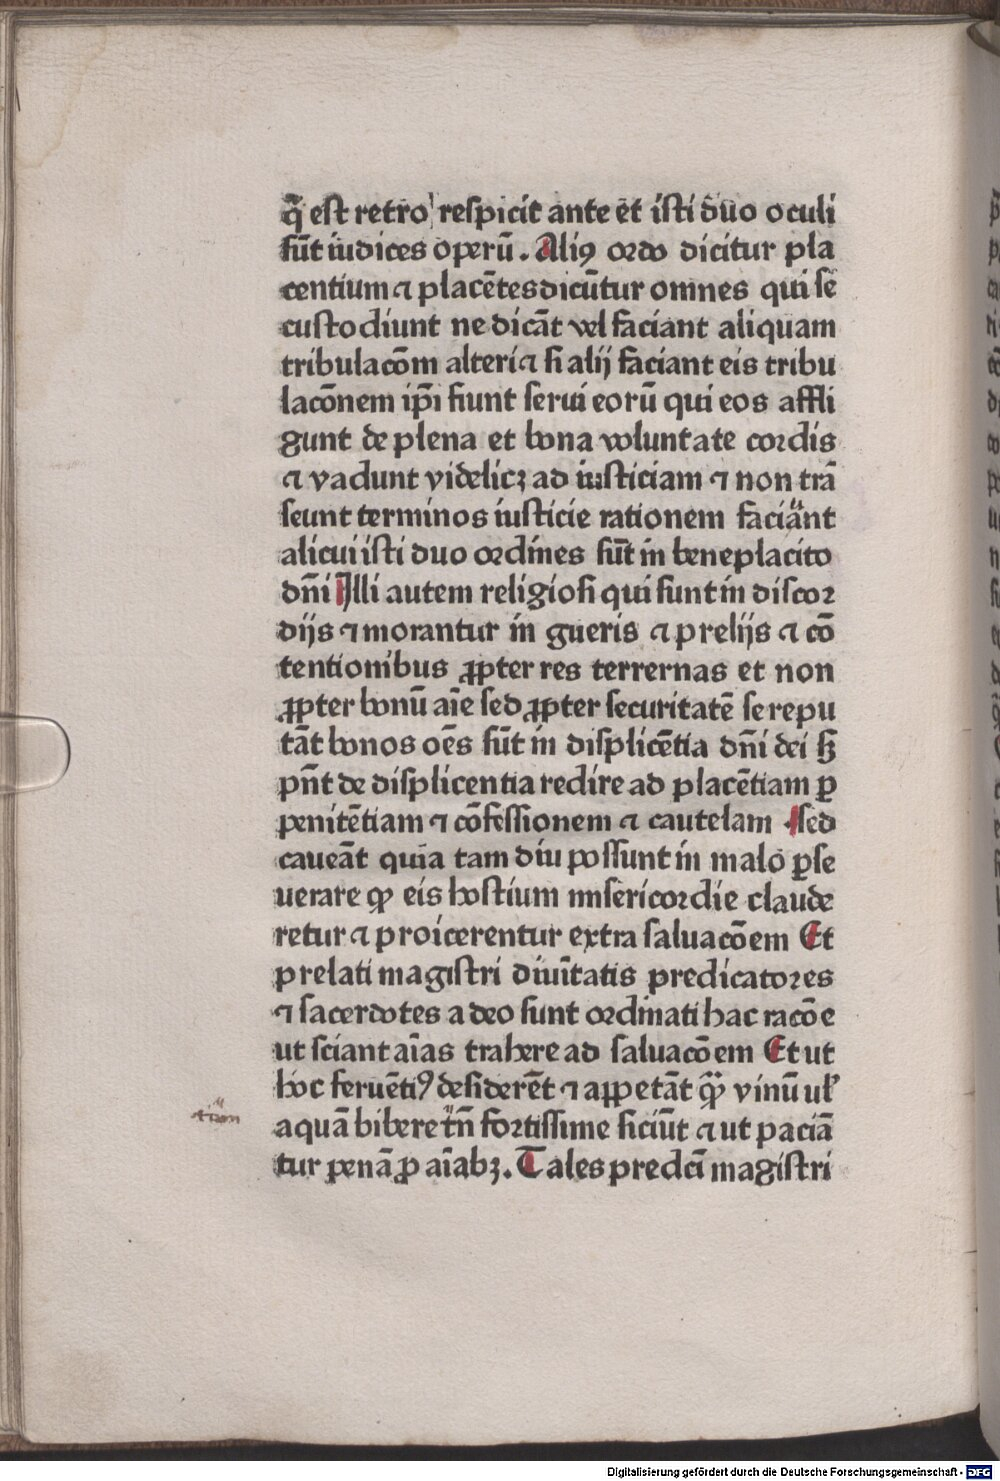 q̄ est retro respicit ante et isti duo oculi
sūt iudices operū. Aliꝰ ordo dicitur pla
centium ⁊ placētes dicūtur omnes qui se
custodiunt ne dicāt vel faciant aliquam
tribulacōm alteri ⁊ si alij faciant eis tribu
lacōnem ip̄i fiunt serui eorū qui eos affli
gunt de plena et bona voluntate cordis
⁊ vadunt videlicꝫ ad iusticiam ⁊ non trā
seunt terminos iusticie rationem faciant
alicui isti duo ordines sūt in beneplacito
dn̄i Illi autem religiosi qui sunt in discor
dijs ⁊ morantur in gueris ⁊ prelijs ⁊ cō
tentionibus ꝓpter res terrernas et non
ꝓpter bonū aīe sed ꝓpter securitatē se repu
tāt bonos oēs sūt in displicētia dn̄i dei sꝫ
pn̄t de displicentia redire ad placētiam ꝑ
penitētiam ⁊ cōfessionem ⁊ cautelam . sed
caueāt quia tam diu possunt in malo ꝑse
uerare ꝙ eis hostium misericordie claude
retur ⁊ proicerentur extra saluacōem Et
prelati magistri diuītatis predicatores
⁊ sacerdotes a deo sunt ordinati hac racōe
ut sciant aīas trahere ad saluacōem Et ut
hoc feruētiꝰ desiderēt ⁊ appetāt qm̄ vinū ul'
aquā bibere tn̄ fortissime siciūt ⁊ ut paciā
tur penā ꝓ aīabꝫ. Tales predcī magistri
Digitalisierung gefördert durch die Deutsche Forschungsgemeinschaft - DFG